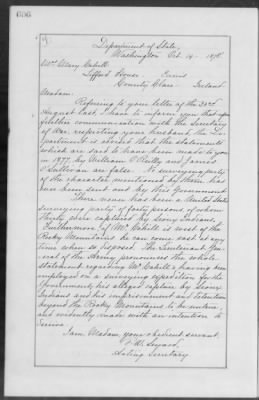 606
Department of State,
Washington Oct. 14 1878
Mrs. Mary Cahill
Clifford House Ennis
County Clare Ireland
Madam:
Referring to your letter of the 30th
August last, I have to inform you that upon
further communication with the Secretary
of War respecting your husband, the De-
partment is advised that the statements
which are said to have been made to you
in 1877 by William O'Reilly and James
O'Sullivan are false. No surveying party
of the character mentioned by them has
been sent out by this Government
There never has been a United States
surveying party of forty persons of whom
thirty were captured by Sioux Indians.
Furthermore if Mr Cahill is west of the
Rocky Mountains he can come east at any
time when so disposed. The Lieutenant Gene-
ral of the Army pronounces the whole
statement regarding Mr Cahill's having been
employed on a surveying expedition for the
Government, his alleged capture by Sioux
Indians and his imprisonment and detention
beyond the Rocky Mountains to be untrue,
and evidently made with an intention to
deceive
I am, Madam, your obedient servant,
F. W. Seward,
Acting Secretary